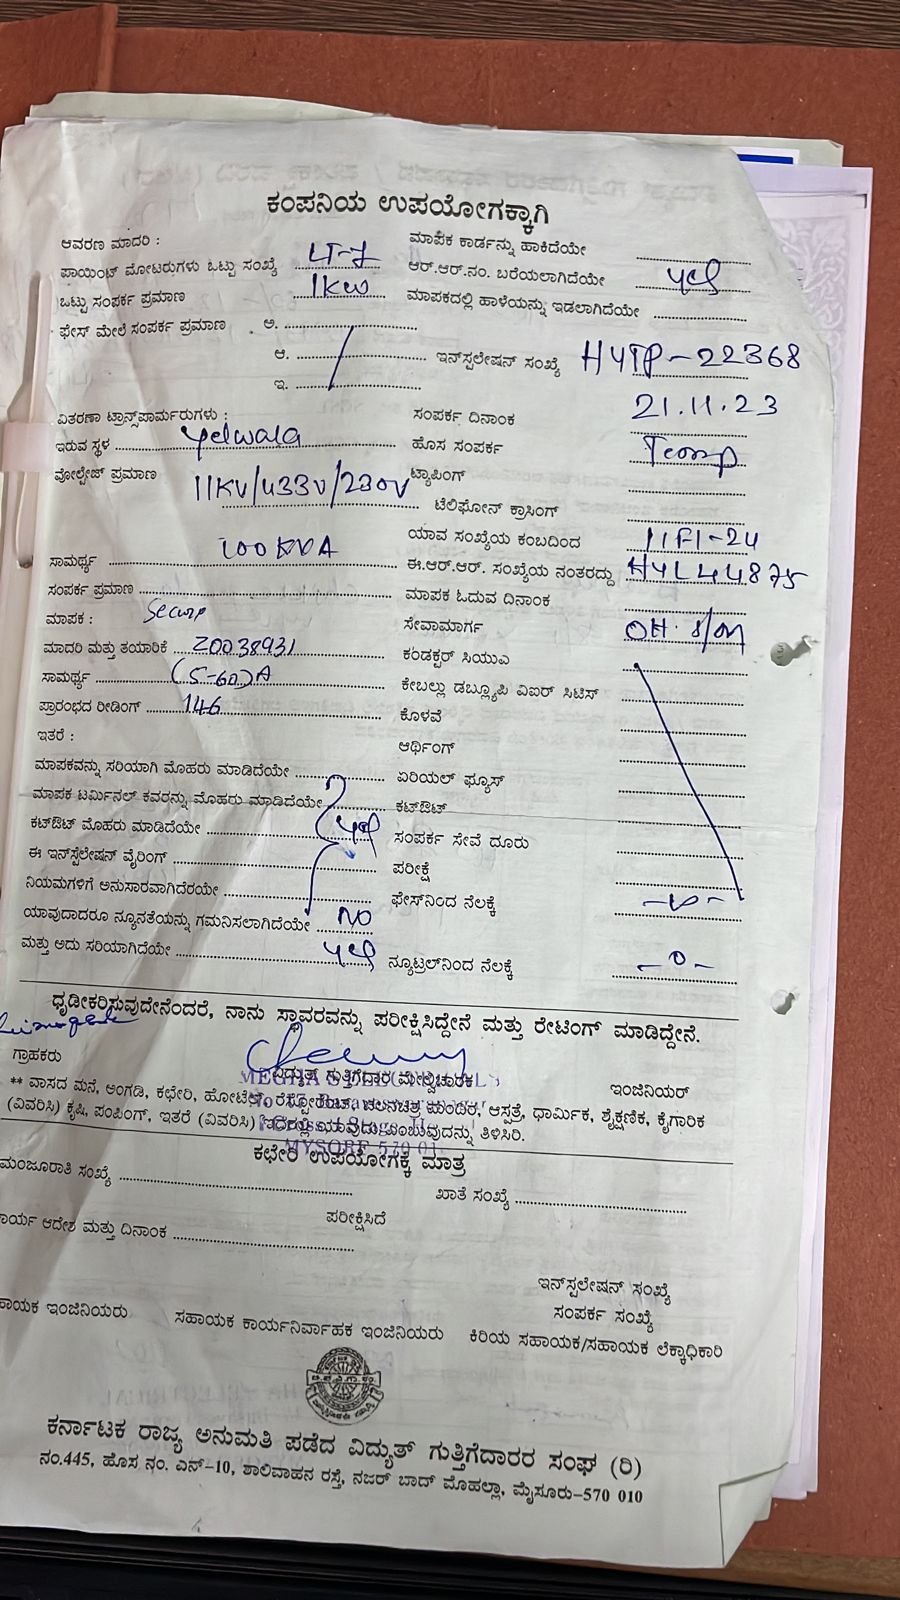 ಕಂಪನಿಯ ಉಪಯೋಗಕ್ಕಾಗಿ
ಆವರಣ ಮಾದರಿ :
ಪಾಯಿಂಟ್ ಮೋಟರುಗಳು ಒಟ್ಟು ಸಂಖ್ಯೆ LT-7
ಒಟ್ಟು ಸಂಪರ್ಕ ಪ್ರಮಾಣ 1KW
ಫೇಸ್ ಮೇಲೆ ಸಂಪರ್ಕ ಪ್ರಮಾಣ
ಅ.
ಆ.
ಇ.
ವಿತರಣಾ ಟ್ರಾನ್ಸ್‌ಪಾರ್ಮರುಗಳು :
ಇರುವ ಸ್ಥಳ Yelwala
ವೋಲ್ಟೇಜ್ ಪ್ರಮಾಣ 11KV/433V/230V
ಸಾಮರ್ಥ್ಯ 100KVA
ಸಂಪರ್ಕ ಪ್ರಮಾಣ
ಮಾಪಕ :
ಮಾದರಿ ಮತ್ತು ತಯಾರಿಕೆ Z0038931
ಸಾಮರ್ಥ್ಯ (5-60)A
ಪ್ರಾರಂಭದ ರೀಡಿಂಗ್ 146
ಇತರೆ :
ಮಾಪಕವನ್ನು ಸರಿಯಾಗಿ ಮೊಹರು ಮಾಡಿದೆಯೇ
ಮಾಪಕ ಟರ್ಮಿನಲ್ ಕವರನ್ನು ಮೊಹರು ಮಾಡಿದೆಯೇ
ಕಟ್‌ಔಟ್ ಮೊಹರು ಮಾಡಿದೆಯೇ yes
ಈ ಇನ್‌ಸ್ಟಲೇಷನ್ ವೈರಿಂಗ್
ನಿಯಮಗಳಿಗೆ ಅನುಸಾರವಾಗಿದೆರಯೇ
ಯಾವುದಾದರೂ ನ್ಯೂನತೆಯನ್ನು ಗಮನಿಸಲಾಗಿದೆಯೇ NO
ಮತ್ತು ಅದು ಸರಿಯಾಗಿದೆಯೇ yes
ಮಾಪಕ ಕಾರ್ಡನ್ನು ಹಾಕಿದೆಯೇ
ಆರ್.ಆರ್.ನಂ. ಬರೆಯಲಾಗಿದೆಯೇ yes
ಮಾಪಕದಲ್ಲಿ ಹಾಳೆಯನ್ನು ಇಡಲಾಗಿದೆಯೇ
ಇನ್‌ಸ್ಪಲೇಷನ್ ಸಂಖ್ಯೆ HYTP-22368
ಸಂಪರ್ಕ ದಿನಾಂಕ 21.11.23
ಹೊಸ ಸಂಪರ್ಕ Temp
ಟ್ಯಾಪಿಂಗ್
ಟೆಲಿಫೋನ್ ಕ್ರಾಸಿಂಗ್
ಯಾವ ಸಂಖ್ಯೆಯ ಕಂಬದಿಂದ 11F1-24
ಈ.ಆರ್.ಆರ್. ಸಂಖ್ಯೆಯ ನಂತರದ್ದು HYL44875
ಮಾಪಕ ಓದುವ ದಿನಾಂಕ
ಸೇವಾಮಾರ್ಗ OH.
ಕಂಡಕ್ಟರ್ ಸಿಯುವಿ
ಕೇಬಲ್ಲು ಡಬ್ಲ್ಯೂಪಿ ವಿಐರ್ ಸಿಟಿಸ್
ಕೊಳವೆ
ಆರ್ಥಿಂಗ್
ಏರಿಯಲ್ ಫ್ಯೂಸ್
ಕಟ್‌ಔಟ್
ಸಂಪರ್ಕ ಸೇವೆ ದೂರು
ಪರೀಕ್ಷೆ
ಫೇಸ್‌ನಿಂದ ನೆಲಕ್ಕೆ
ನ್ಯೂಟ್ರಲ್‌ನಿಂದ ನೆಲಕ್ಕೆ -0-
ಧೃಡೀಕರಿಸುವುದೇನೆಂದರೆ, ನಾನು ಸ್ಥಾವರವನ್ನು ಪರೀಕ್ಷಿಸಿದ್ದೇನೆ ಮತ್ತು ರೇಟಿಂಗ್ ಮಾಡಿದ್ದೇನೆ.
ಗ್ರಾಹಕರು ವಿದ್ಯುತ್ ಗುತ್ತಿಗೆದಾರ ಮೇಲ್ವಿಚಾರಕ ಇಂಜಿನಿಯರ್
** ವಾಸದ ಮನೆ, ಅಂಗಡಿ, ಕಛೇರಿ, ಹೋಟೆಲ್, ರೆಸ್ಟೋರೆಂಟ್, ಚಲನಚಿತ್ರ ಮಂದಿರ, ಆಸ್ಪತ್ರೆ, ಧಾರ್ಮಿಕ, ಶೈಕ್ಷಣಿಕ, ಕೈಗಾರಿಕ
(ವಿವರಿಸಿ) ಕೃಷಿ, ಪಂಪಿಂಗ್, ಇತರೆ (ವಿವರಿಸಿ) ಇದರಲ್ಲಿ ಯಾವುದು ಎಂಬುವುದನ್ನು ತಿಳಿಸಿರಿ.
ಕಛೇರಿ ಉಪಯೋಗಕ್ಕೆ ಮಾತ್ರ
ಮಂಜೂರಾತಿ ಸಂಖ್ಯೆ ಖಾತೆ ಸಂಖ್ಯೆ
ಪರೀಕ್ಷಿಸಿದೆ
ಕಾರ್ಯ ಆದೇಶ ಮತ್ತು ದಿನಾಂಕ
ಇನ್‌ಸ್ಪಲೇಷನ್ ಸಂಖ್ಯೆ
ಸಂಪರ್ಕ ಸಂಖ್ಯೆ
ಸಹಾಯಕ ಇಂಜಿನಿಯರು ಸಹಾಯಕ ಕಾರ್ಯನಿರ್ವಾಹಕ ಇಂಜಿನಿಯರು ಕಿರಿಯ ಸಹಾಯಕ/ಸಹಾಯಕ ಲೆಕ್ಕಾಧಿಕಾರಿ
ಕರ್ನಾಟಕ ರಾಜ್ಯ ಅನುಮತಿ ಪಡೆದ ವಿದ್ಯುತ್ ಗುತ್ತಿಗೆದಾರರ ಸಂಘ (ರಿ)
ನಂ.445, ಹೊಸ ನಂ. ಎನ್-10, ಶಾಲಿವಾಹನ ರಸ್ತೆ, ನಜರ್ ಬಾದ್ ಮೊಹಲ್ಲಾ, ಮೈಸೂರು-570 010